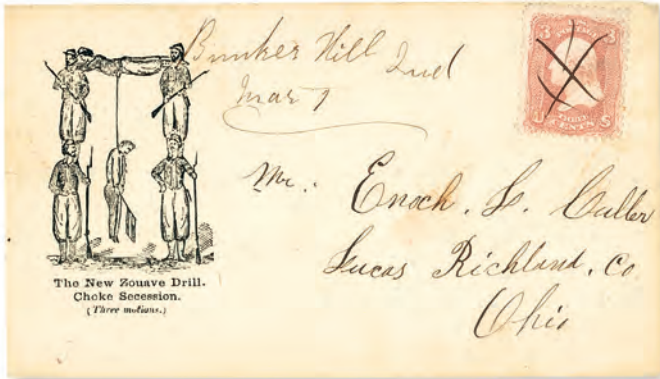 Bunker Hill Ind
Mar 7
3 3
U S
CENTS
Mr. Enoch. S. Culler
Lucas Richland. Co.
Ohio
The New Zouave Drill.
Choke Secession.
(Three motions.)